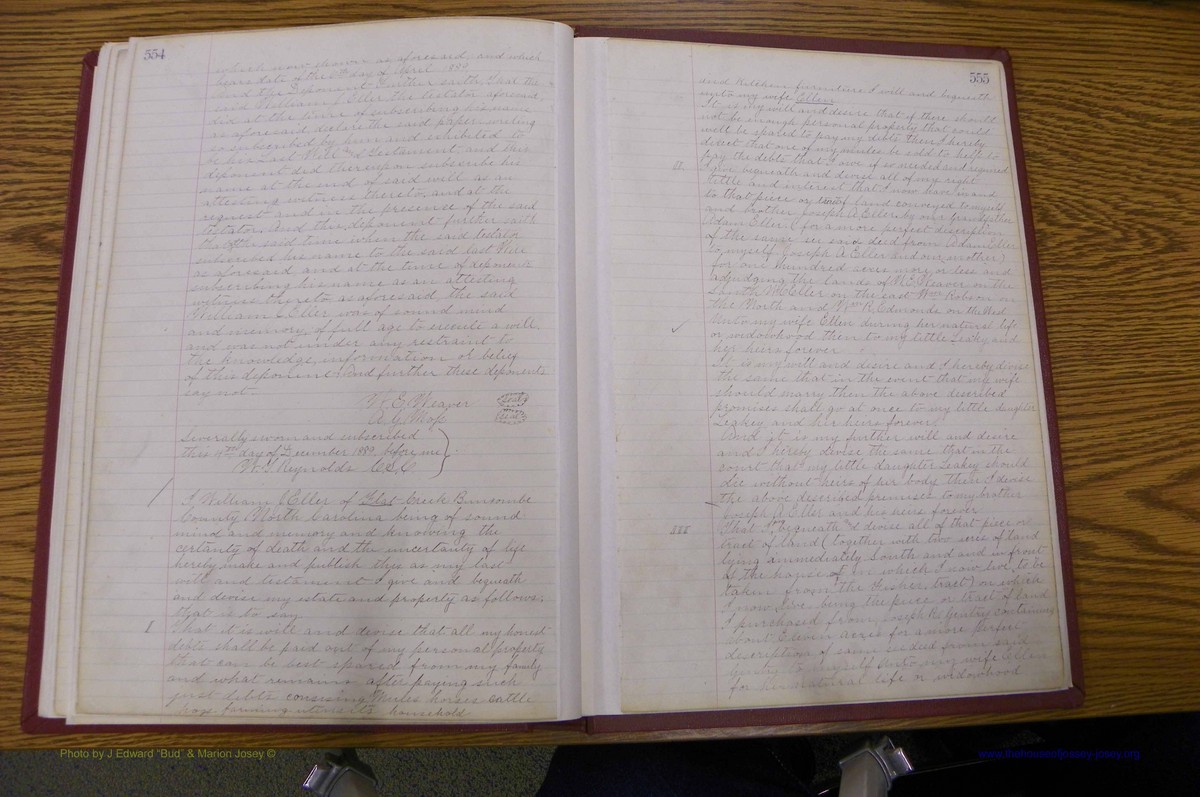 554
which now shown as aforesaid, and which
bears date of the day of April 189
and the deponent further saith, that the
said William J Eller the testator aforesaid,
did at the time of subscribing his name
as aforesaid declare the said paper writing
so subscribed by him and exhibited to
be his Last Will and Testament and this
deponent did thereupon subscribe his
name at the end of said will as an
attesting witness thereto, and at the
request and in the presence of the said
testator. And this deponent further saith
that at the said time when the said testator
subscribed his name to the said last Will
as aforesaid and at the time of deponents
subscribing his name as an attesting
witness thereto as aforesaid, the said
William J Eller was of sound mind
and memory, of full age to execute a will,
and was not under any restraint to
the knowledge, information or belief
of this deponent. And further these deponents
say not.
W. E. Weaver (seal)
(seal)
Severally sworn and subscribed
this 4th day of December 1889, before me
W. T. Reynolds C.S.C
I William J Eller of Flat Creek Buncombe
County North Carolina being of sound
mind and memory and knowing the
certanty of death and the uncertanty of life
hereby make and publish this as my last
will and testament I give and bequeath
and devise my estate and property as follows:
that is to say
I
That it is will and devise that all my honest
debts shall be paid out of my personal property
that can be best spared from my family
and what remains after paying such
just debts consisting Mules horses cattle
hogs farming utensils household
555
and Kitchen furniture I will and bequeath
unto my wife Ellen
It is my will and desire that if there should
not be enough personal property that could
well be spared to pay my debts then I hereby
direct that one of my mules be sold to help to
pay the debts that I owe if so needed and required
II
I give bequeath and devise all of my right
tittle and interest that I now have in and
to that piece or of land conveyed to myself
and brother Joseph A Eller, by our Grandfather
Adam Eller, (for a more perfect description
of the same see said deed from Adam Eller
to myself, Joseph A Eller and our mother)
for one hundred acres more or less and
adjudging the lands of W. E. Weaver on the
South Eller on the east Wm Robson on
the North and Wm R. Edmonds on the West
Unto my wife Ellen during her natural life
or widowhood then to my little Leakey, and
her heirs forever
It is my will and desire and I hereby devise
the same that in the event that my wife
should marry then the above described
promises shall go at once to my little daughter
Leakey and her heirs forever
And it is my further will and desire
and I hereby devise the same that in the
court that my little daughter Leakey should
die without heirs of her body then I devise
the above described premises to my brother
Joseph A Eller and his heirs forever
III
That I bequeath and devise all of that piece or
tract of land (together with two acres of land
lying immediately South and and in front
of the house in which I now live, to be
taken from the tract) on which
I now live being the piece or tract of land
I purchased from Joseph R. Gentry containing
about Eleven acres for a more perfect
description of same see deed from said
Gentry to myself Unto my wife Ellen
for her natural life or widowhood
Photo by J Edward "Bud" & Marion Josey ©
www.thehouseofjossey-josey.org